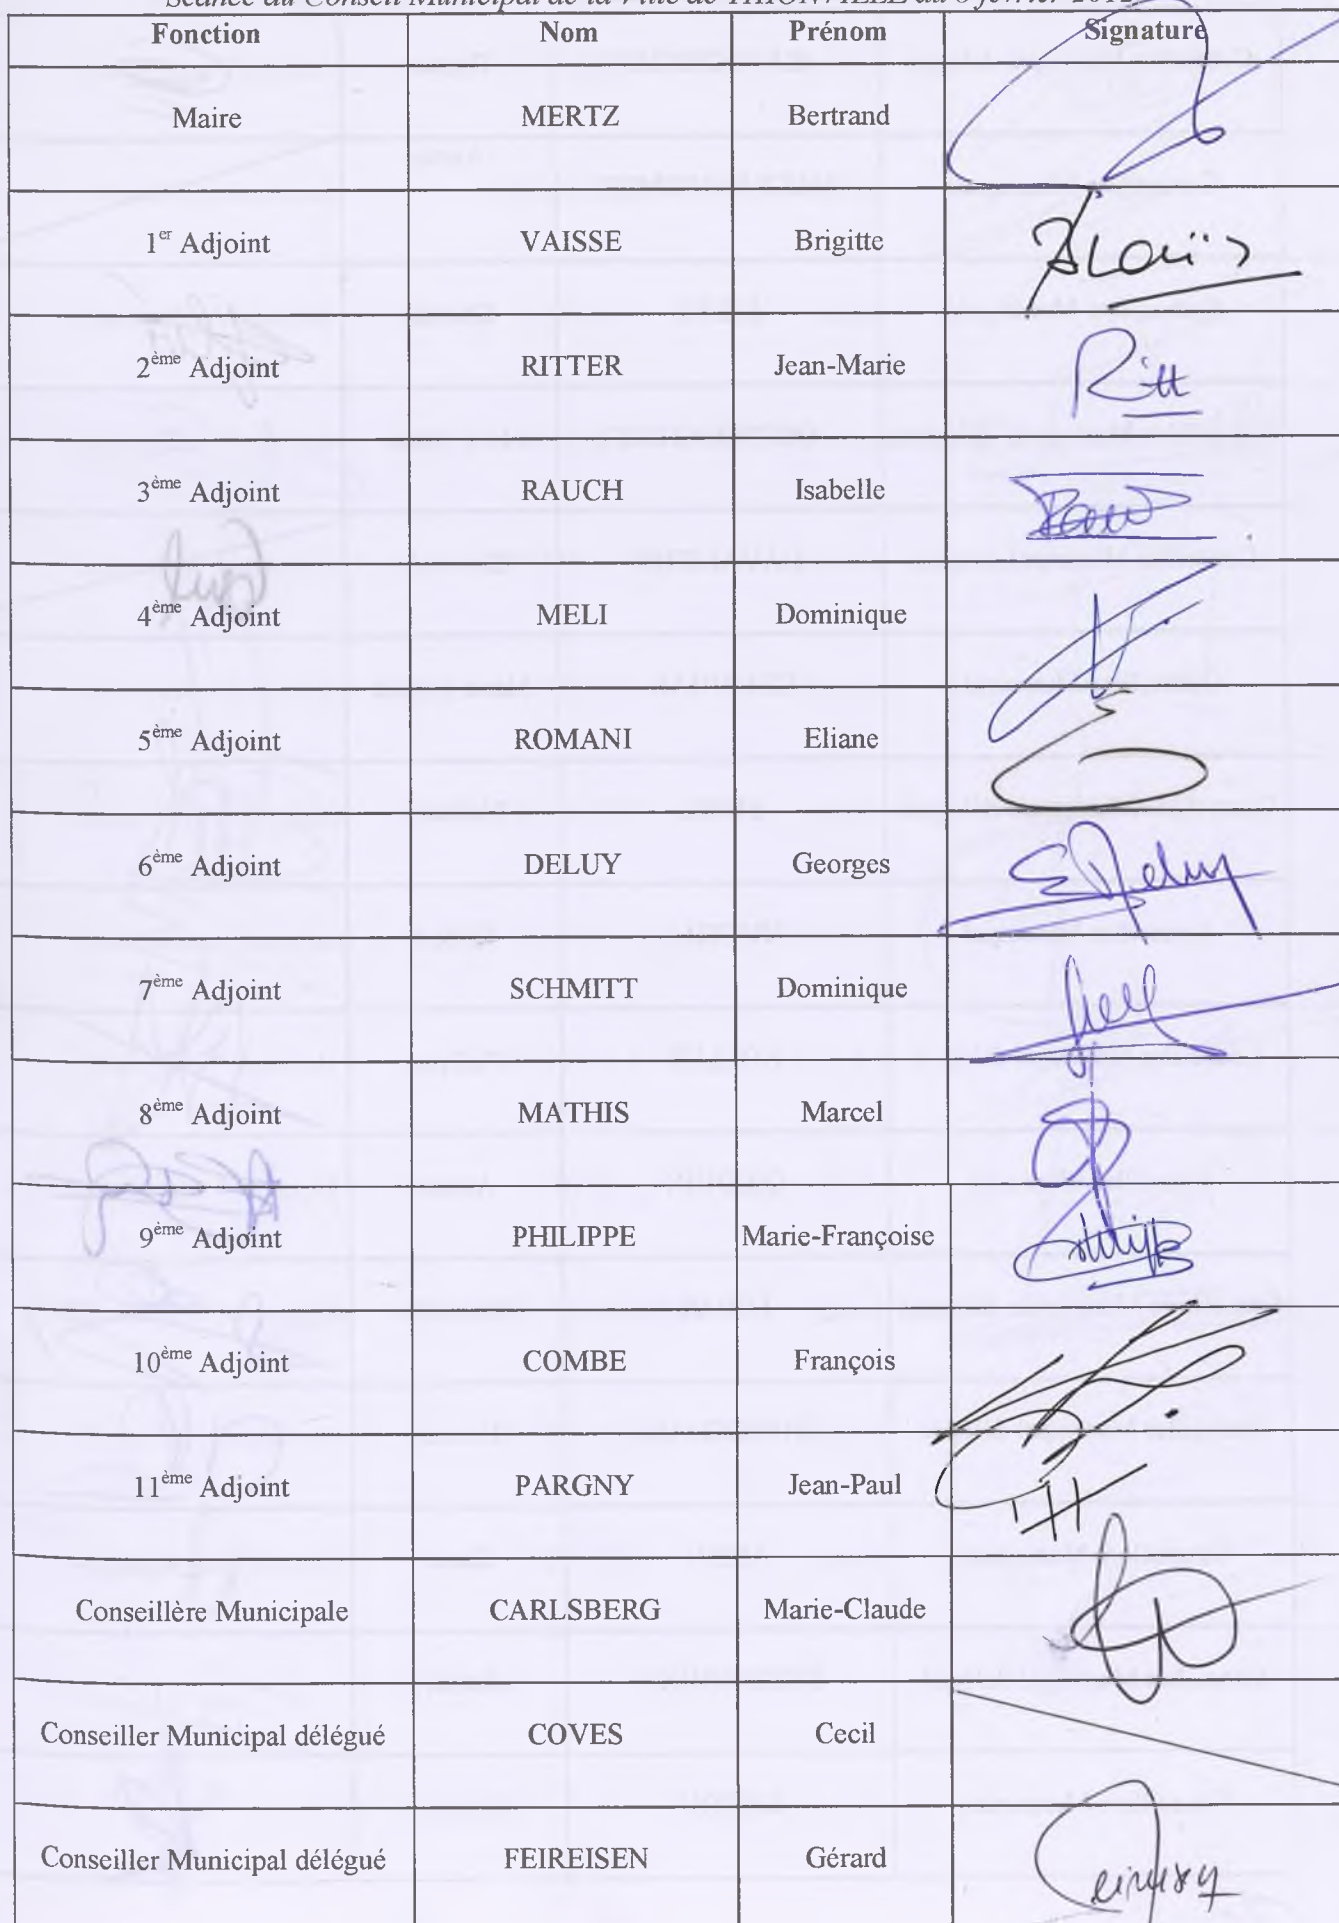 Séance du Conseil Municipal de la Ville de THIONVILLE du 6 février 2012
Fonction Nom Prénom Signature
Maire MERTZ Bertrand
1er Adjoint VAISSE Brigitte
2ème Adjoint RITTER Jean-Marie Ritt
3ème Adjoint RAUCH Isabelle
4ème Adjoint MELI Dominique
5ème Adjoint ROMANI Eliane
6ème Adjoint DELUY Georges Deluy
7ème Adjoint SCHMITT Dominique
8ème Adjoint MATHIS Marcel
9ème Adjoint PHILIPPE Marie-Françoise
10ème Adjoint COMBE François
11ème Adjoint PARGNY Jean-Paul
Conseillère Municipale CARLSBERG Marie-Claude
Conseiller Municipal délégué COVES Cecil
Conseiller Municipal délégué FEIREISEN Gérard